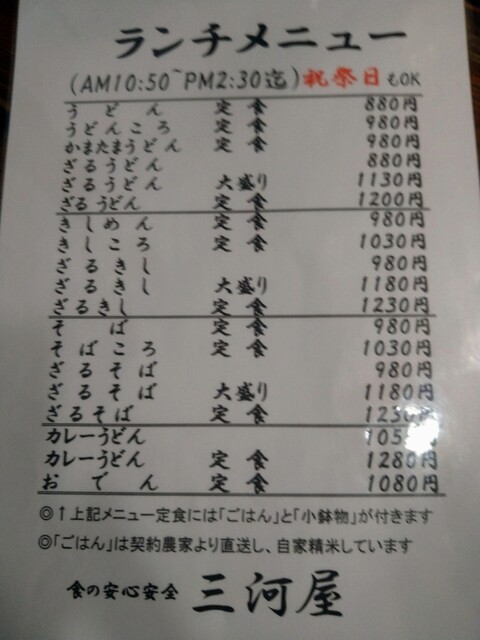 ランチメニュー
(AM10:50~PM2:30迄)祝祭日もOK
うどん 定食 880円
うどんころ 定食 980円
かまたまうどん 定食 980円
ざるうどん 880円
ざるうどん 大盛り 1130円
ざるうどん 定食 1200円
きしめん 定食 980円
きしころ 定食 1030円
ざるきし 980円
ざるきし 大盛り 1180円
ざるきし 定食 1230円
そば 定食 980円
そばころ 定食 1030円
ざるそば 980円
ざるそば 大盛り 1180円
ざるそば 定食 1230円
カレーうどん
カレーうどん 定食 1280円
おでん 定食 1080円
◎↑上記メニュー定食には「ごはん」と「小鉢物」が付きます
◎「ごはん」は契約農家より直送し、自家精米しています
食の安心安全 三河屋